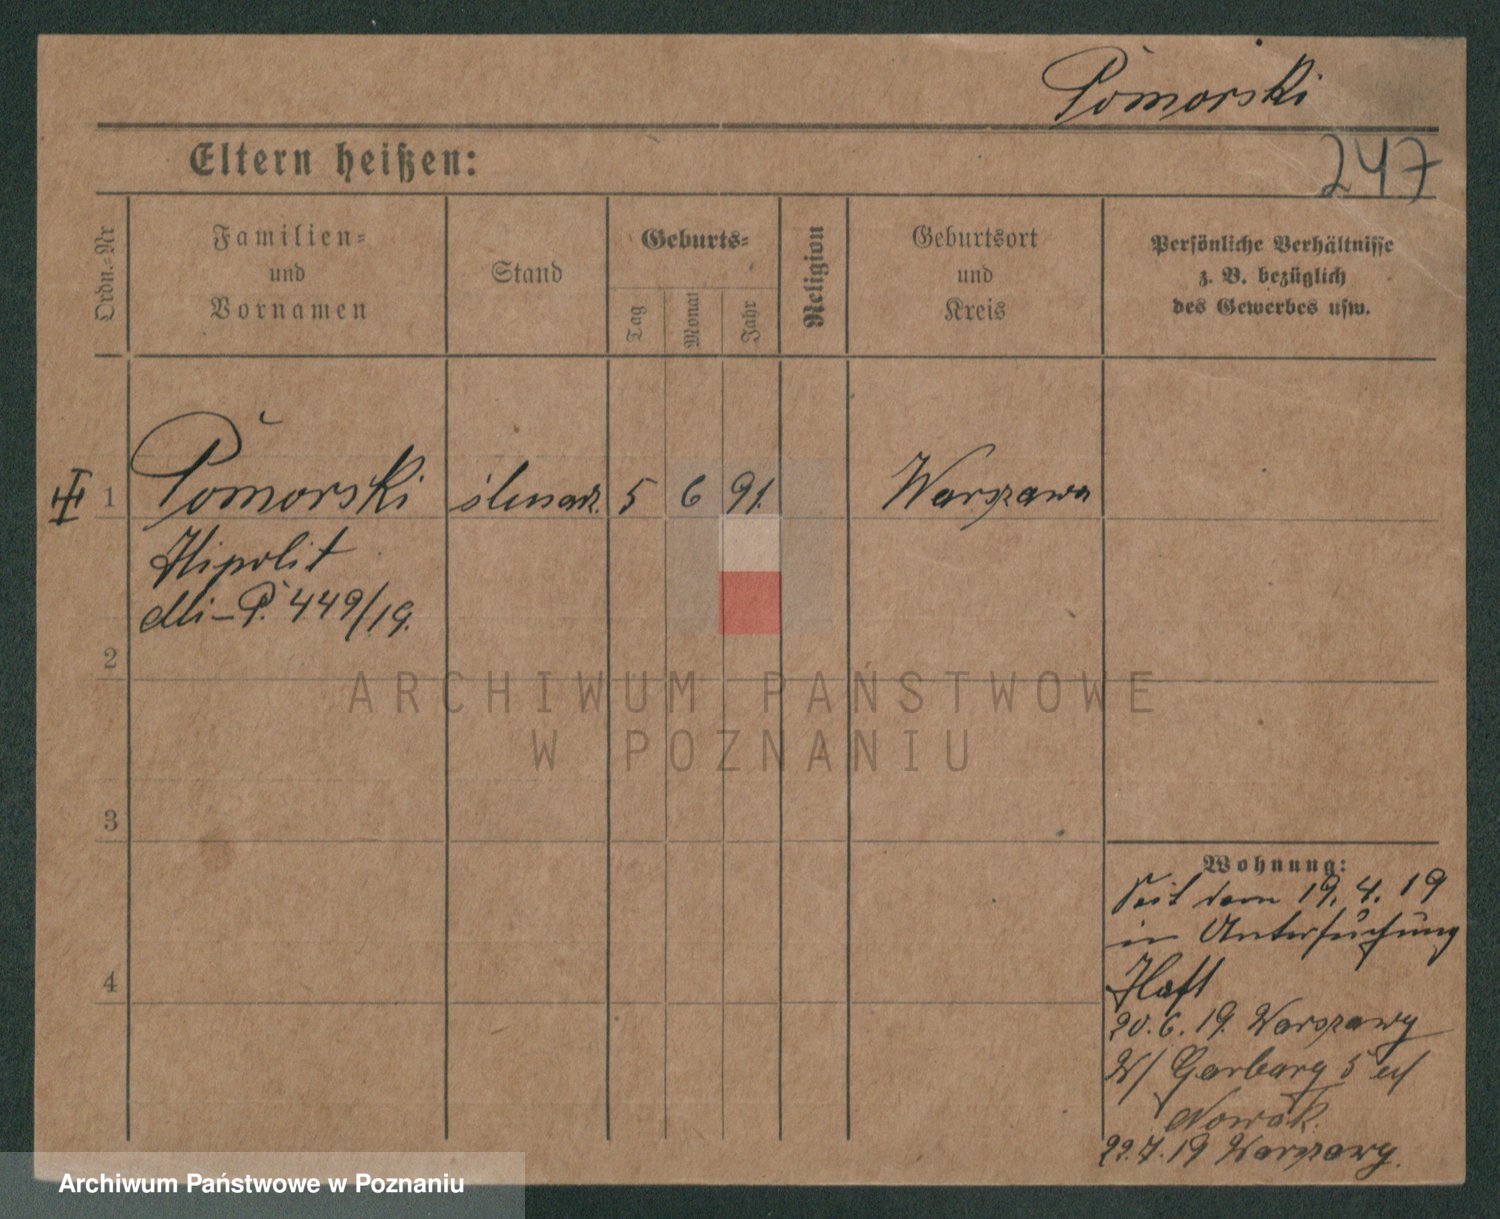 Pomorski
247
Eltern heißen:
Ordn.-Nr
Familien-
und
Vornamen
Stand
Geburts-
Tag
Monat
Jahr
Religion
Geburtsort
und
Kreis
Persönliche Verhältnisse
z. B. bezüglich
des Gewerbes usw.
1 Pomorski ślusarz. 5 6 91. Warszawa
Hipolit
449/19.
2
3
4
Wohnung:
Seit dem 19. 4. 19
in Untersuchung
Haft
20.6.19. Warszawy
W/ Garbary 5
Nowak.
22.7.19 Warszawy.
ARCHIWUM PAŃSTWOWE
W POZNANIU
Archiwum Państwowe w Poznaniu